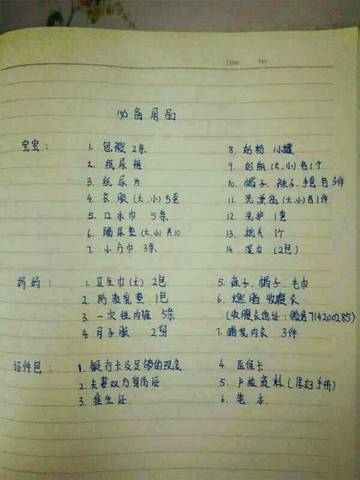 Date No
必备用品
宝宝： 1. 包被 2条 8. 奶粉 1小罐
2. 纸尿裤 9. 奶瓶(大.小)各1个
3. 纸尿片 10. 帽子、袜子、手套各3件
4. 衣服(大.小)5套 11. (大.小)各1件
5. 口水巾 5条 12. 洗护 1套
6. 隔尿垫(大.小)共10 13. 1个
7. 小方巾 3条 14. 湿巾 (2包)
妈妈： 1. 卫生巾(大) 2包 5. 袜子、帽子、毛巾
2. 防溢乳垫 1包 6. 燃脂 收腹衣
3. 一次性内裤 5条 (收腹衣地址： 714200285)
4. 月子服 2身 7. 哺乳内衣 3件
证件包： 1. 银行卡及足够的现金 4. 医保卡
2. 夫妻双方身份证 5. 资料 (孕妇手册)
3. 准生证 6. 笔、本.